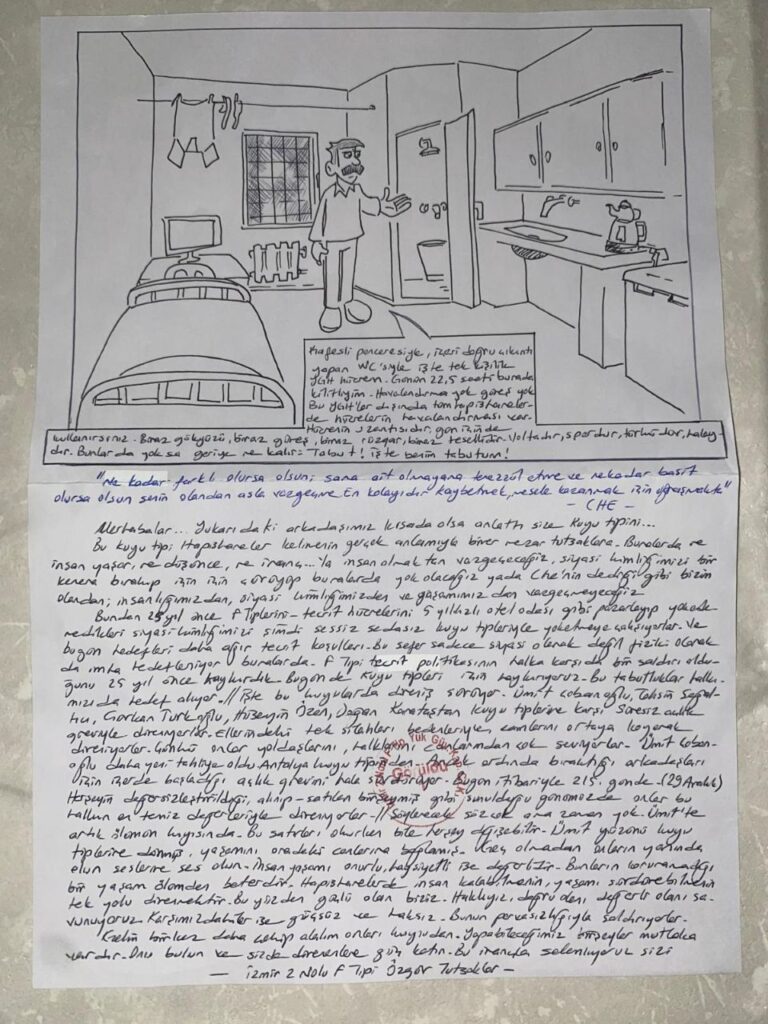 Kafesli penceresiyle, içeri doğru çıkıntı
yapan WC'siyle işte tek kişilik
Ybit hücrem. Günün 22,5 saati burada
kilitliyim. Havalandırma yok güneş yok
Bu Ybit'ler dışında tüm hapishaneler-
de hücrelerin havalandırması var.
Hücrenin uzantısıdır, gün içinde
kullanırsınız. Biraz gökyüzü, biraz güneş, biraz rüzgar, biraz tesellidir. Voltadır, spordur, türküdür, halay-
dır. Bunlar da yoksa geriye ne kalır? Tabut! İşte benim tabutum!
"Ne kadar farklı olursa olsun; sana ait olmayana tenezzül etme ve nekadar basit
olursa olsun senin olandan asla vazgeçme. En kolayıdır kaybetmek, mesele kazanmak için uğraşmakta"
- CHE -
Merhabalar... Yukarıdaki arkadaşımız kısada olsa anlattı size kuyu tipini...
Bu kuyu tipi Hapishaneler kelimenin gerçek anlamıyla birer mezar tutsaklara. Buralarda ne
insan yaşar, ne düşünce, ne inanç... Ya insan olmaktan vazgeçeceğiz, siyasi kimliğimizi bir
kenera bırakıp için için çürüyüp buralarda yok olacağız yada Che'nin dediği gibi bizim
olandan; insanlığımızdan, siyasi kimliğimizden ve yaşamımızdan vazgeçmeyeceğiz
Bundan 25 yıl önce F Tiplerini - tecrit hücrelerini 5 yıldızlı otel odası gibi pazarlayıp yokede
medikleri siyasi kimliğimizi şimdi sessiz sedasız kuyu tipleriyle yoketmeye çalışıyorlar. Ve
bugün hedefleri daha ağır tecrit koşulları. Bu sefer sadece siyasi olarak değil fiziki olarak
da imha hedefleniyor buralarda. F Tipi tecrit politikasının halka karşıda bir saldırı oldu-
ğunu 25 yıl önce haykırdık. Bugün de kuyu tipleri için haykırıyoruz. Bu tabutluklar halkı-
mızıda hedef alıyor. // İşte bu kuyularda direniş sürüyor. Ümit Çobanoğlu, Tahsin Sağal-
tıcı, Gürkan Türkoğlu, Hüseyin Özen, Doğan Karataştan kuyu tiplerine karşı Süresiz açlık
greviyle direniyorlar. Ellerindeki tek silahları bedenleriyle, canlarını ortaya koyarak
direniyorlar. Çünkü onlar yoldaşlarını, halklarını canlarından çok seviyorlar. Ümit Çoban-
oğlu daha yeni tahliye oldu Antalya kuyu tipinden. Ancak ardında bıraktığı arkadaşları
için içerde başladığı açlık grevini hala sürdürüyor. Bugün itibariyle 215. günde. (29 Aralık)
Herşeyin değersizleştirildiği, alınıp-satılan birşeymiş gibi sunulduğu günümüzde onlar bu
halkın en temiz değerleriyle direniyorlar. // Söylenecek söz çok ama zaman yok. Ümit'te
artık ölümün kıyısında. Bu satırları okurken bile herşey değişebilir. Ümit yüzünü kuyu
tiplerine dönmüş, yaşamını oradaki canlarına bağlamış. Geç olmadan onların yanında
olun seslerine ses olun. İnsan yaşamı onurlu, haysiyetli ise değerlidir. Bunların korunamadığı
bir yaşam ölümden beterdir. Hapishanelerde insan kalabilmenin, yaşamı sürdürebilmenin
tek yolu direnmektir. Bu yüzden güçlü olan biziz. Haklıyız, doğru olanı, değerli olanı sa-
vunuyoruz. Karşımızdakiler ise güçsüz ve haksız. Bunun pervasızlığıyla saldırıyorlar.
Gelin bir kez daha çekip alalım onları kuyudan. Yapabileceğimiz birşeyler mutlaka
vardır. Onu bulun ve sizde direnenlere güç katın. Bu inançla selamlıyoruz sizi
- İzmir 2 Nolu F Tipi Özgür Tutsaklar -
Görüldü